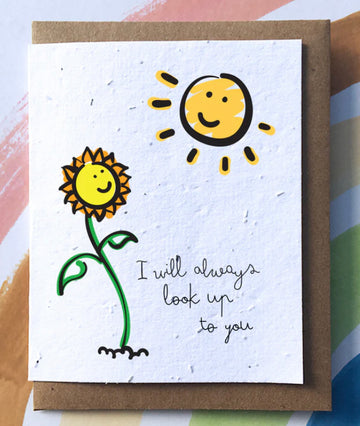 I will always
look up
to you